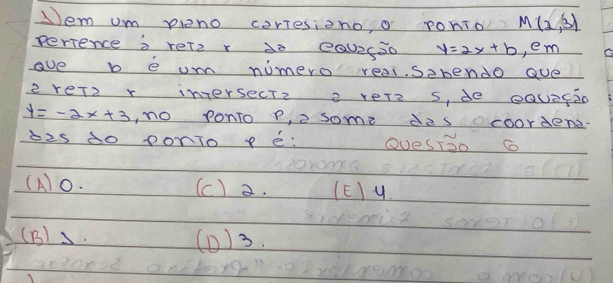 1) em um plano cartesiano, o ponto M(2,3)
pertence à reta r da equação y=2x+b, em
que b é um número real. Sabendo que
a reta r intersecta a reta s, de equação
y=-2x+3, no ponto P, a soma das coordena-
das do ponto P é: Questão 6
(A) 0. (C) 2. (E) 4.
(B) 1. (D) 3.